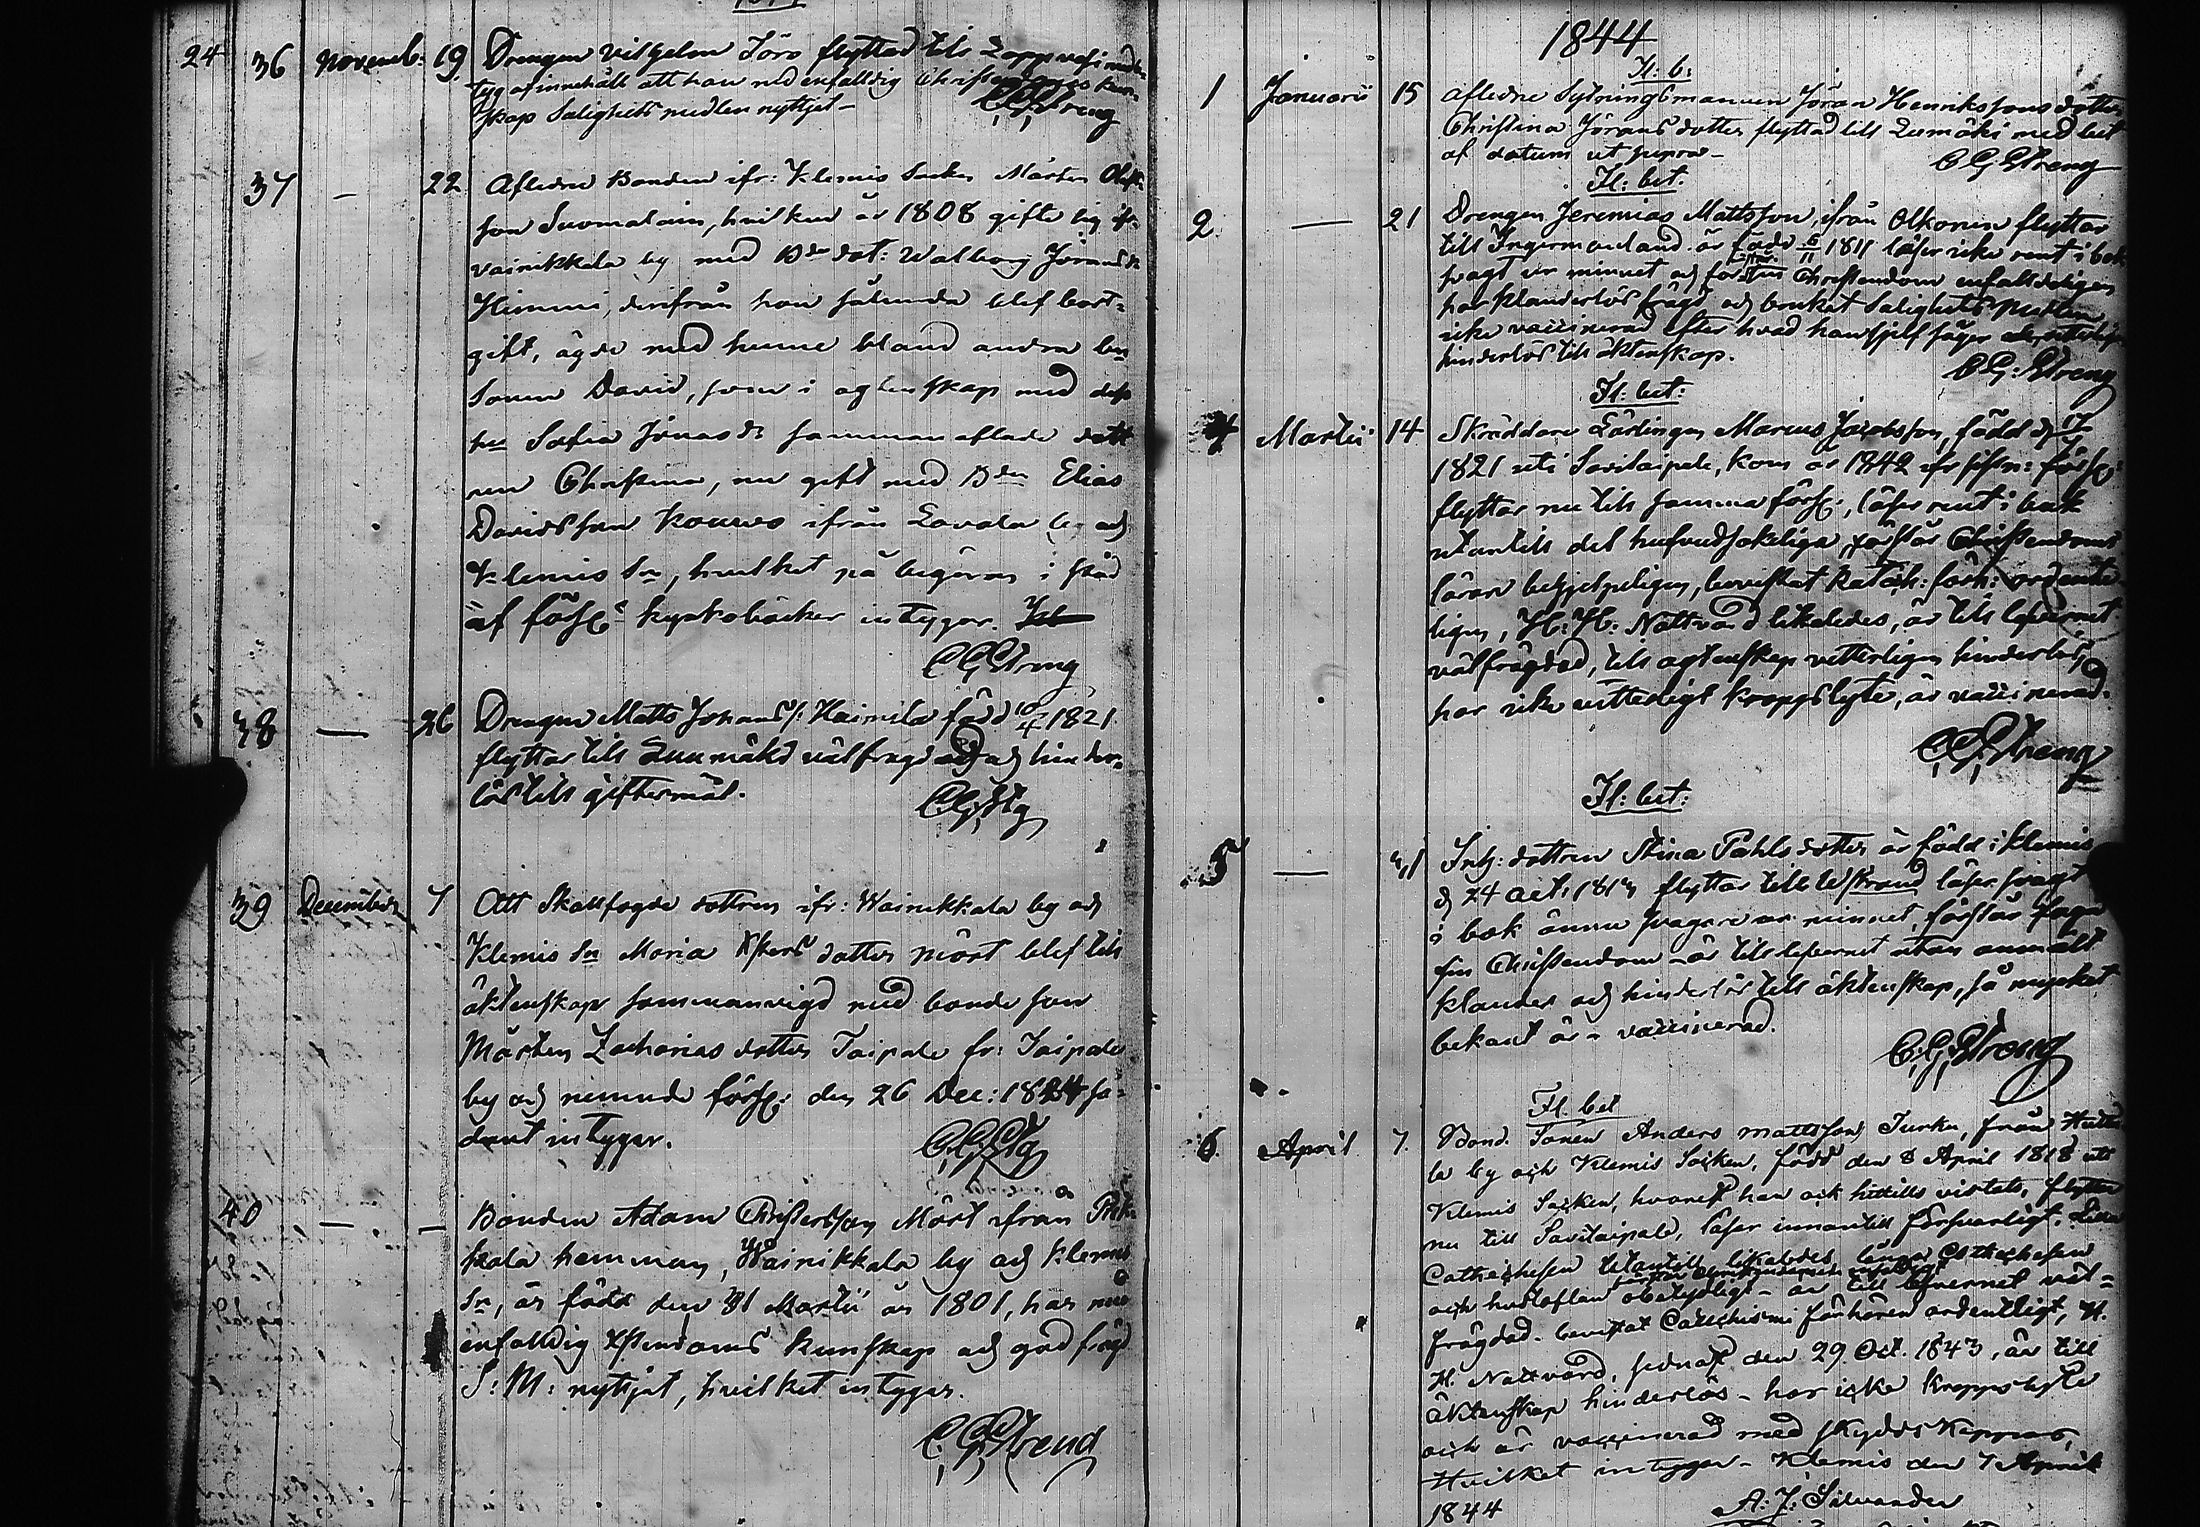 24 36 Novemb: 19. Drengen Vilhelm Törö flyttad till
tyg af innehåll att han med enfaldig
skap Salighets medlen nyttjat –
C.G. Streng
37 – 22 Aflidne Bonden ifr: Klemis Socken Mårten
son Suomalain, hvilken år 1808 gifte sig ifr.
Vainikkala by med Bde dot: Walborg
Himmi, derifrån han sålunda blef bort-
gift, ägde med henne bland andra
Sonen David, som i agtenskap med
Sofia Jonas dr sammanaflade dott
ren Christina, nu gift med Bden Elias
Davidsson Kouwo ifrån Lavola by och
Klemis Sn, hvilket på begäran i stöd
af förs: kyrkoböcker intygar.
C G Streng
38 — 26 Drengen Matts Johans s: Haimila född 10/4 1821
flyttar till Luumäki välfrägdad och hinder-
lös till giftermål.
C.G. Stg
39 December 7 Att Skallfogde dottren ifr: Wainikkala by och
Klemis Sn Maria dotter Mört blef till
äktenskap sammanvigd med bonde son
Mårten Zacharias dotter Taipale fr: Taipale
by och nemnde förs: den 26 Dec: 1824 så-
dant intygar.
C.G. Stg
40 — – Bonden Adam Christersson Mört ifrån
kala hemman, Wainikkala by och Klemis
Sn, är född den 31 Martii år 1801, har
enfaldig Xstendoms kunskap och god frägd
S: M: nyttjat, hvilket intygar.
C. G. Streng
1844
Fl: b:
1 Januarii 15 Aflidne Sytningsmannen Jöran Henrikssons dotter
Christina Jörans dotter flyttad till Lumäki med bet
af datum ut supra –
C G Streng
Fl: bet.
2 — 21 Drengen Jeremias Mattsson, ifrån Olkonen flyttar
till Ingermanland är född 1811 läser icke rent i bok
svagt ur minnet och Christendom enfaldeligen
har klanderlös frägd och brukat Salighets medlen
icke vaccinerad efter hvad han sjelf säger
hinderlös till äktenskap.
C G. Streng
Fl: bet:
4 Martii 14 Skräddare Lärlingen Marcus Jacobsson, född d
1821 uti Savitaipale, kom år 1842 ifr sistn: förs:
flyttar nu till samma förs:, läser rent i bok
utantill det hufvudsakeliga, förstår Christendoms
läran behjelpeligen, bevistat Katech: förh: ordente-
ligen, H: H: Nattvard likaledes, är till lefvernet
välfrägdad, till agtenskap vetterligen hinderlös,
har icke vetterligt kroppslyte, är vaccinerad.
C.G. Streng
Fl: bet:
5 — Inh: dottren Stina Pahls dotter är född i Klemis
d 24 Oct: flyttar till Wstrand läser svagt
i bok ännu svagare ur minnet, förstår
sin Christendom – är till lefvernet utan anmält
klander och hinderlös till äktenskap, så mycket
bekant är – vaccinerad.
C.G. Streng
Fl. bet
6. April 7. Bond. Sonen Anders Mattsson Turku, från
la by och Klemis Socken, född den 8 April 1818 uti
Klemis Socken, hvarest han ock hittills vistats, flyttar
nu till Savitaipale, läser innantill försvarligt. Lilla
Cathechesen utantill likaledes, långa Cathechesen
och hustaflan obetydligt – är till lefvernet väl-
frägdad. bevistat Catechismi förhören ordentligt, H.
H. Nattvard, sednast den 29 Oct. 1843, är till
äktenskap hinderlös – har icke kroppslyte
och är vaccinerad med skyddskoppor,
Hvilket intygar – Klemis den 7 April
1844
A. J. Silvander